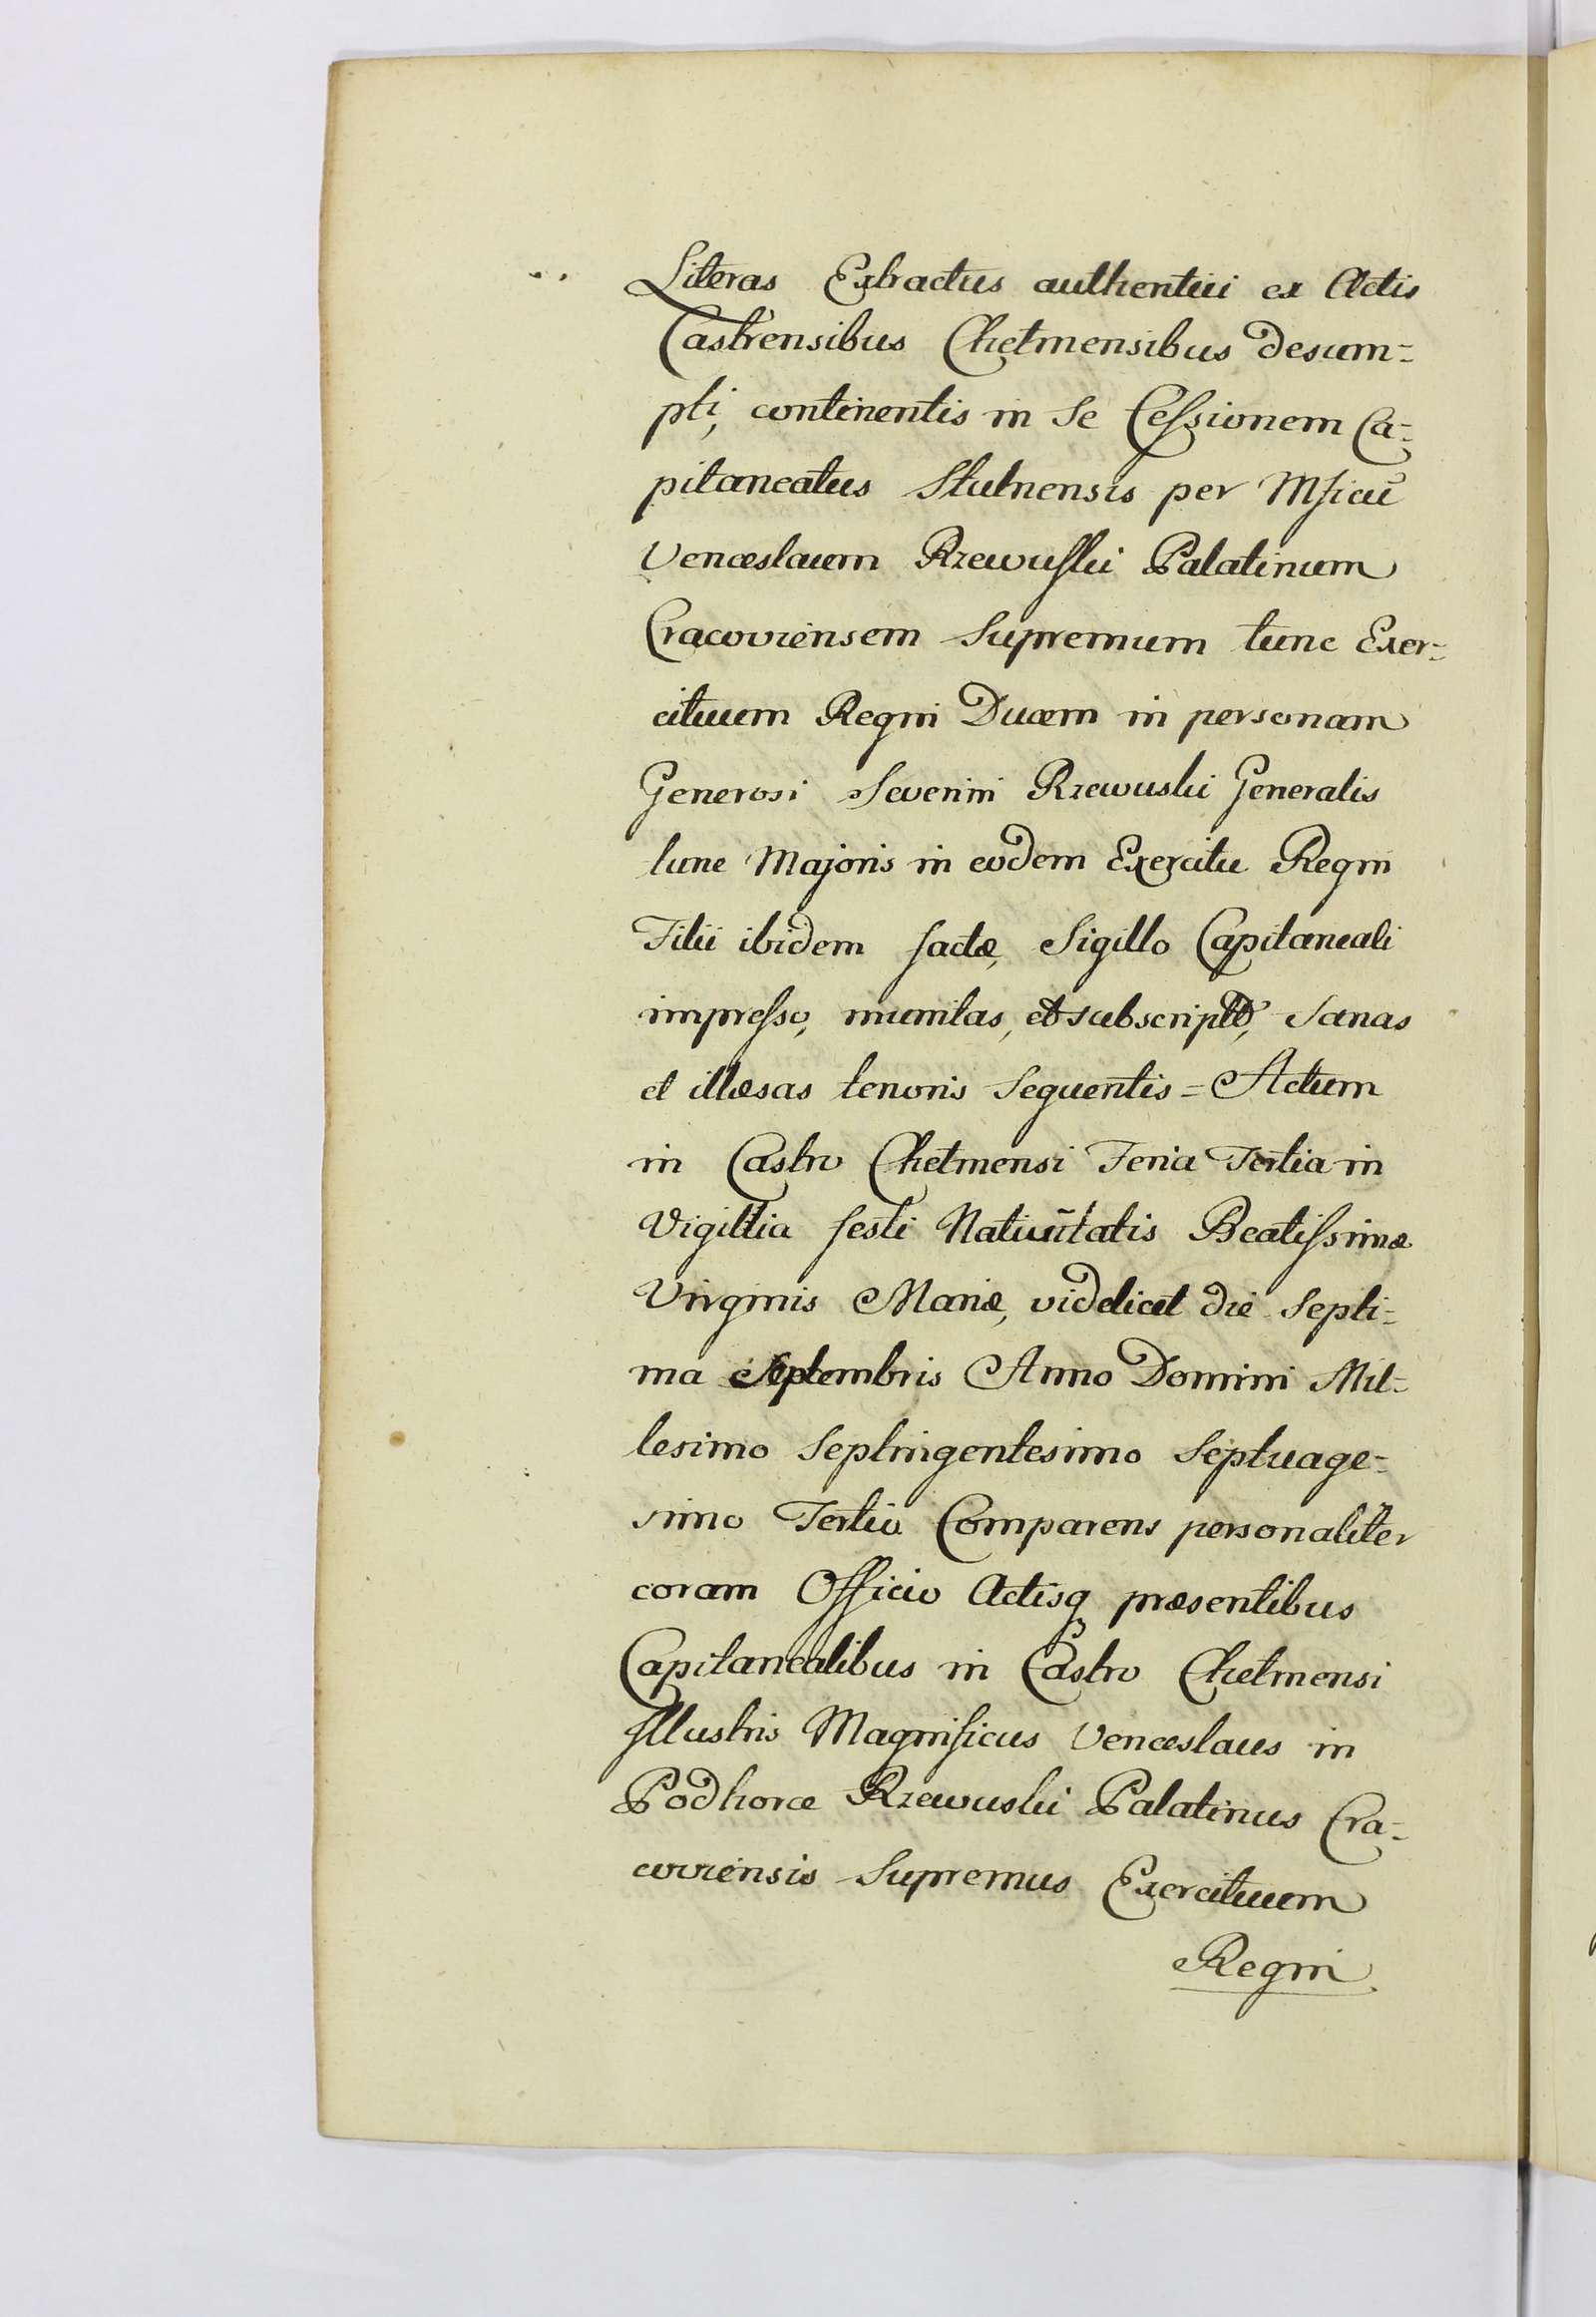 Literas Extractus authentici ex Actis
Castrensibus Chełmensibus desum=
pti, continentis in se Cessionem Ca=
pitaneatus Stulnensis per Mficū
Venceslaum Rzewuski Palatinum
Cracoviensem Supremum tunc Exer=
cituum Regni Ducem in personam
Generosi Severini Rzewuski Generalis
tunc Majoris in eodem Exercitu Regni
Filii ibidem factæ, Sigillo Capitaneali
impresso, munitas, et subscripto, sanas
et illæsas tenoris sequentis = Actum
in Castro Chełmensi Feria Tertia in
Vigillia festi Nativitatis Beatissimæ
Virginis Mariæ, videlicet die Septi=
ma Septembris Anno Domini Mil=
lesimo Septingentesimo Septuage=
simo Tertio Comparens personaliter
coram Officio Actisq præsentibus
Capitanealibus in Castro Chełmensi
Illustris Magnificus Venceslaus in
Podhorce Rzewuski Palatinus Cra=
coviensis Supremus Exercituum
Regni